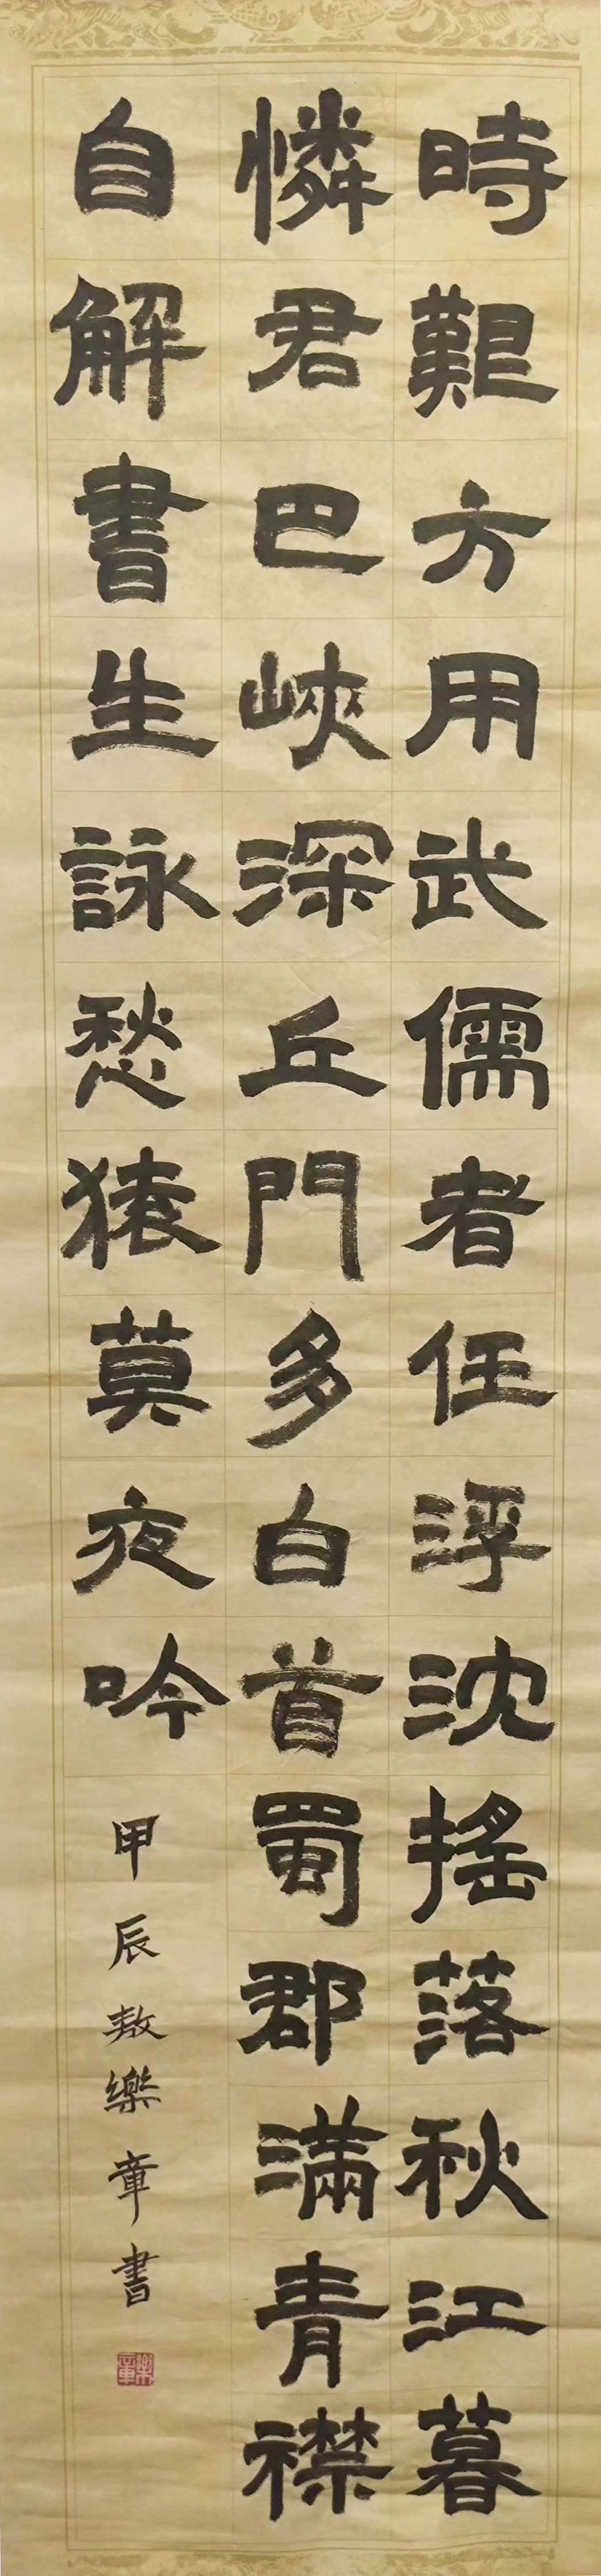 時艱方用武儒者任浮沈搖落秋江暮
憐君巴峽深丘門多白首蜀郡滿青襟
自解書生詠愁猿莫夜吟
甲辰敖樂章書
樂章